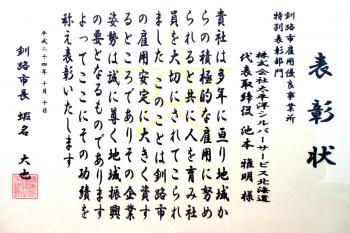 表彰状
釧路市雇用優良事業所
特別表彰部門
株式会社太平洋シルバーサービス北海道
代表取締役 池本雅明様
貴社は多年に亘り地域か
らの積極的な雇用に努め
られると共に人を育み社
員を大切にされてこられ
ました このことは釧路市
の雇用安定に大きく資す
るところでありその企業
姿勢は誠に尊く地域振興
の要となるものであります
よってここにその功績を
称え表彰いたします
平成二十四年十月十日
釧路市長 蝦名大也